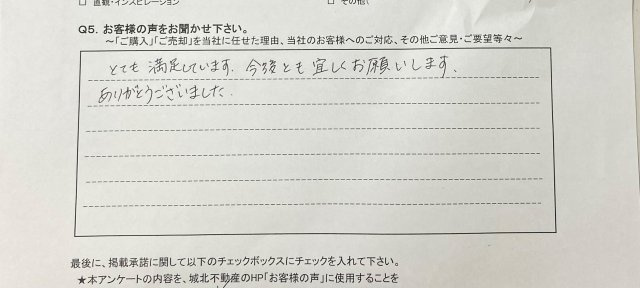 □ 直観・インスピレーション　□ その他(
Q5. お客様の声をお聞かせ下さい。
～「ご購入」「ご売却」を当社に任せた理由、当社のお客様へのご対応、その他ご意見・ご要望等々～
とても満足しています. 今後とも宜しくお願いします.
ありがとうございました.
最後に、掲載承諾に関して以下のチェックボックスにチェックを入れて下さい。
★本アンケートの内容を、城北不動産のHP「お客様の声」に使用することを